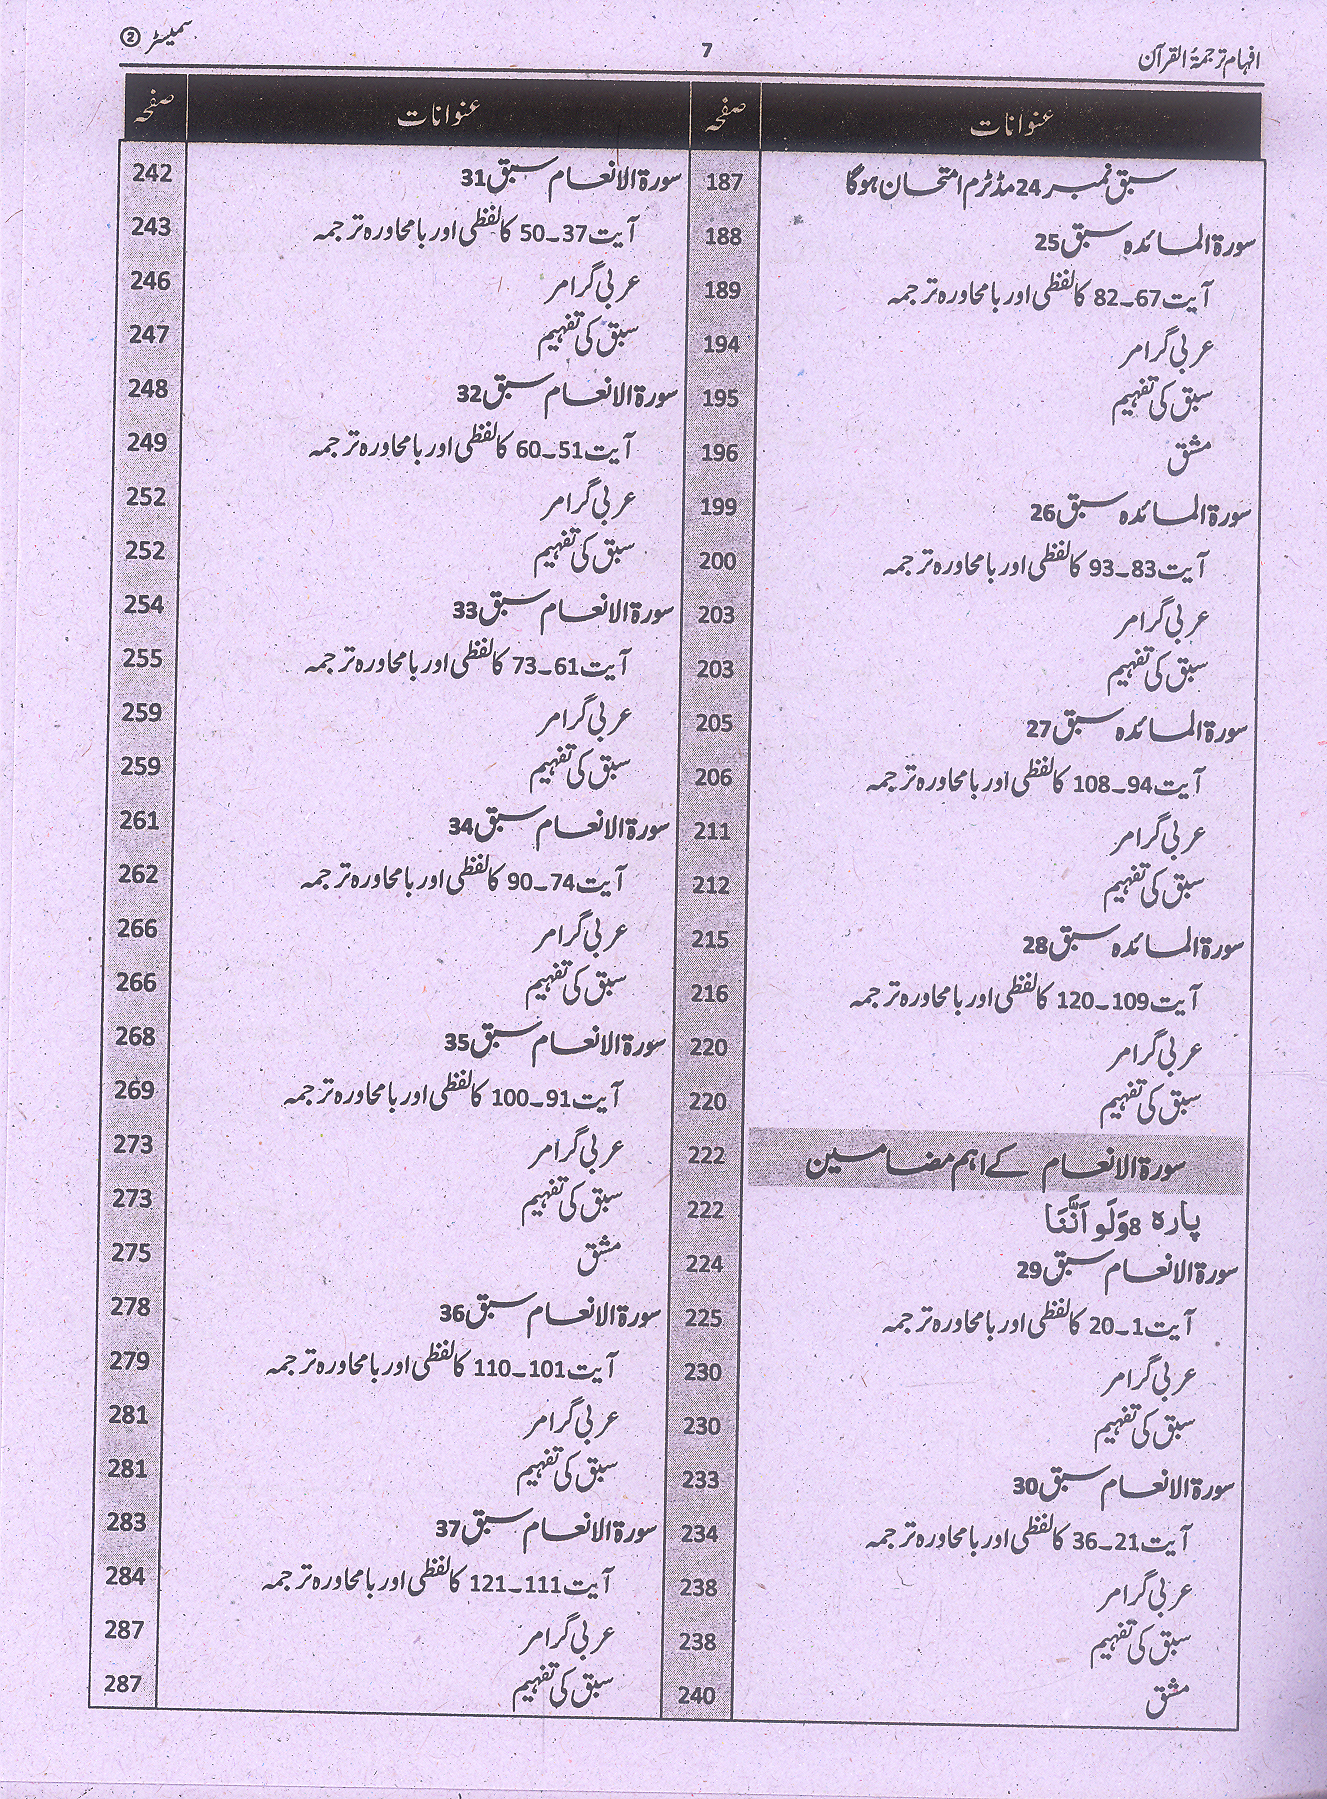 افہام ترجمۃ القرآن 7 سمیسٹر ②
عنوانات صفحہ
سبق نمبر 24 مڈٹرم امتحان ہوگا 187
سورۃ المائدہ سبق 25 188
آیت 67۔82 کا لفظی اور بامحاورہ ترجمہ 189
عربی گرامر 194
سبق کی تفہیم 195
مشق 196
سورۃ المائدہ سبق 26 199
آیت 83۔93 کا لفظی اور بامحاورہ ترجمہ 200
عربی گرامر 203
سبق کی تفہیم 203
سورۃ المائدہ سبق 27 205
آیت 94۔108 کا لفظی اور بامحاورہ ترجمہ 206
عربی گرامر 211
سبق کی تفہیم 212
سورۃ المائدہ سبق 28 215
آیت 109۔120 کا لفظی اور بامحاورہ ترجمہ 216
عربی گرامر 220
سبق کی تفہیم 220
سورۃ الانعام کے اہم مضامین 222
پارہ 8 وَلَو اَنَّنَا 222
سورۃ الانعام سبق 29 224
آیت 1۔20 کا لفظی اور بامحاورہ ترجمہ 225
عربی گرامر 230
سبق کی تفہیم 230
سورۃ الانعام سبق 30 233
آیت 21۔36 کا لفظی اور بامحاورہ ترجمہ 234
عربی گرامر 238
سبق کی تفہیم 238
مشق 240
عنوانات صفحہ
سورۃ الانعام سبق 31 242
آیت 37۔50 کا لفظی اور بامحاورہ ترجمہ 243
عربی گرامر 246
سبق کی تفہیم 247
سورۃ الانعام سبق 32 248
آیت 51۔60 کا لفظی اور بامحاورہ ترجمہ 249
عربی گرامر 252
سبق کی تفہیم 252
سورۃ الانعام سبق 33 254
آیت 61۔73 کا لفظی اور بامحاورہ ترجمہ 255
عربی گرامر 259
سبق کی تفہیم 259
سورۃ الانعام سبق 34 261
آیت 74۔90 کا لفظی اور بامحاورہ ترجمہ 262
عربی گرامر 266
سبق کی تفہیم 266
سورۃ الانعام سبق 35 268
آیت 91۔100 کا لفظی اور بامحاورہ ترجمہ 269
عربی گرامر 273
سبق کی تفہیم 273
مشق 275
سورۃ الانعام سبق 36 278
آیت 101۔110 کا لفظی اور بامحاورہ ترجمہ 279
عربی گرامر 281
سبق کی تفہیم 281
سورۃ الانعام سبق 37 283
آیت 111۔121 کا لفظی اور بامحاورہ ترجمہ 284
عربی گرامر 287
سبق کی تفہیم 287